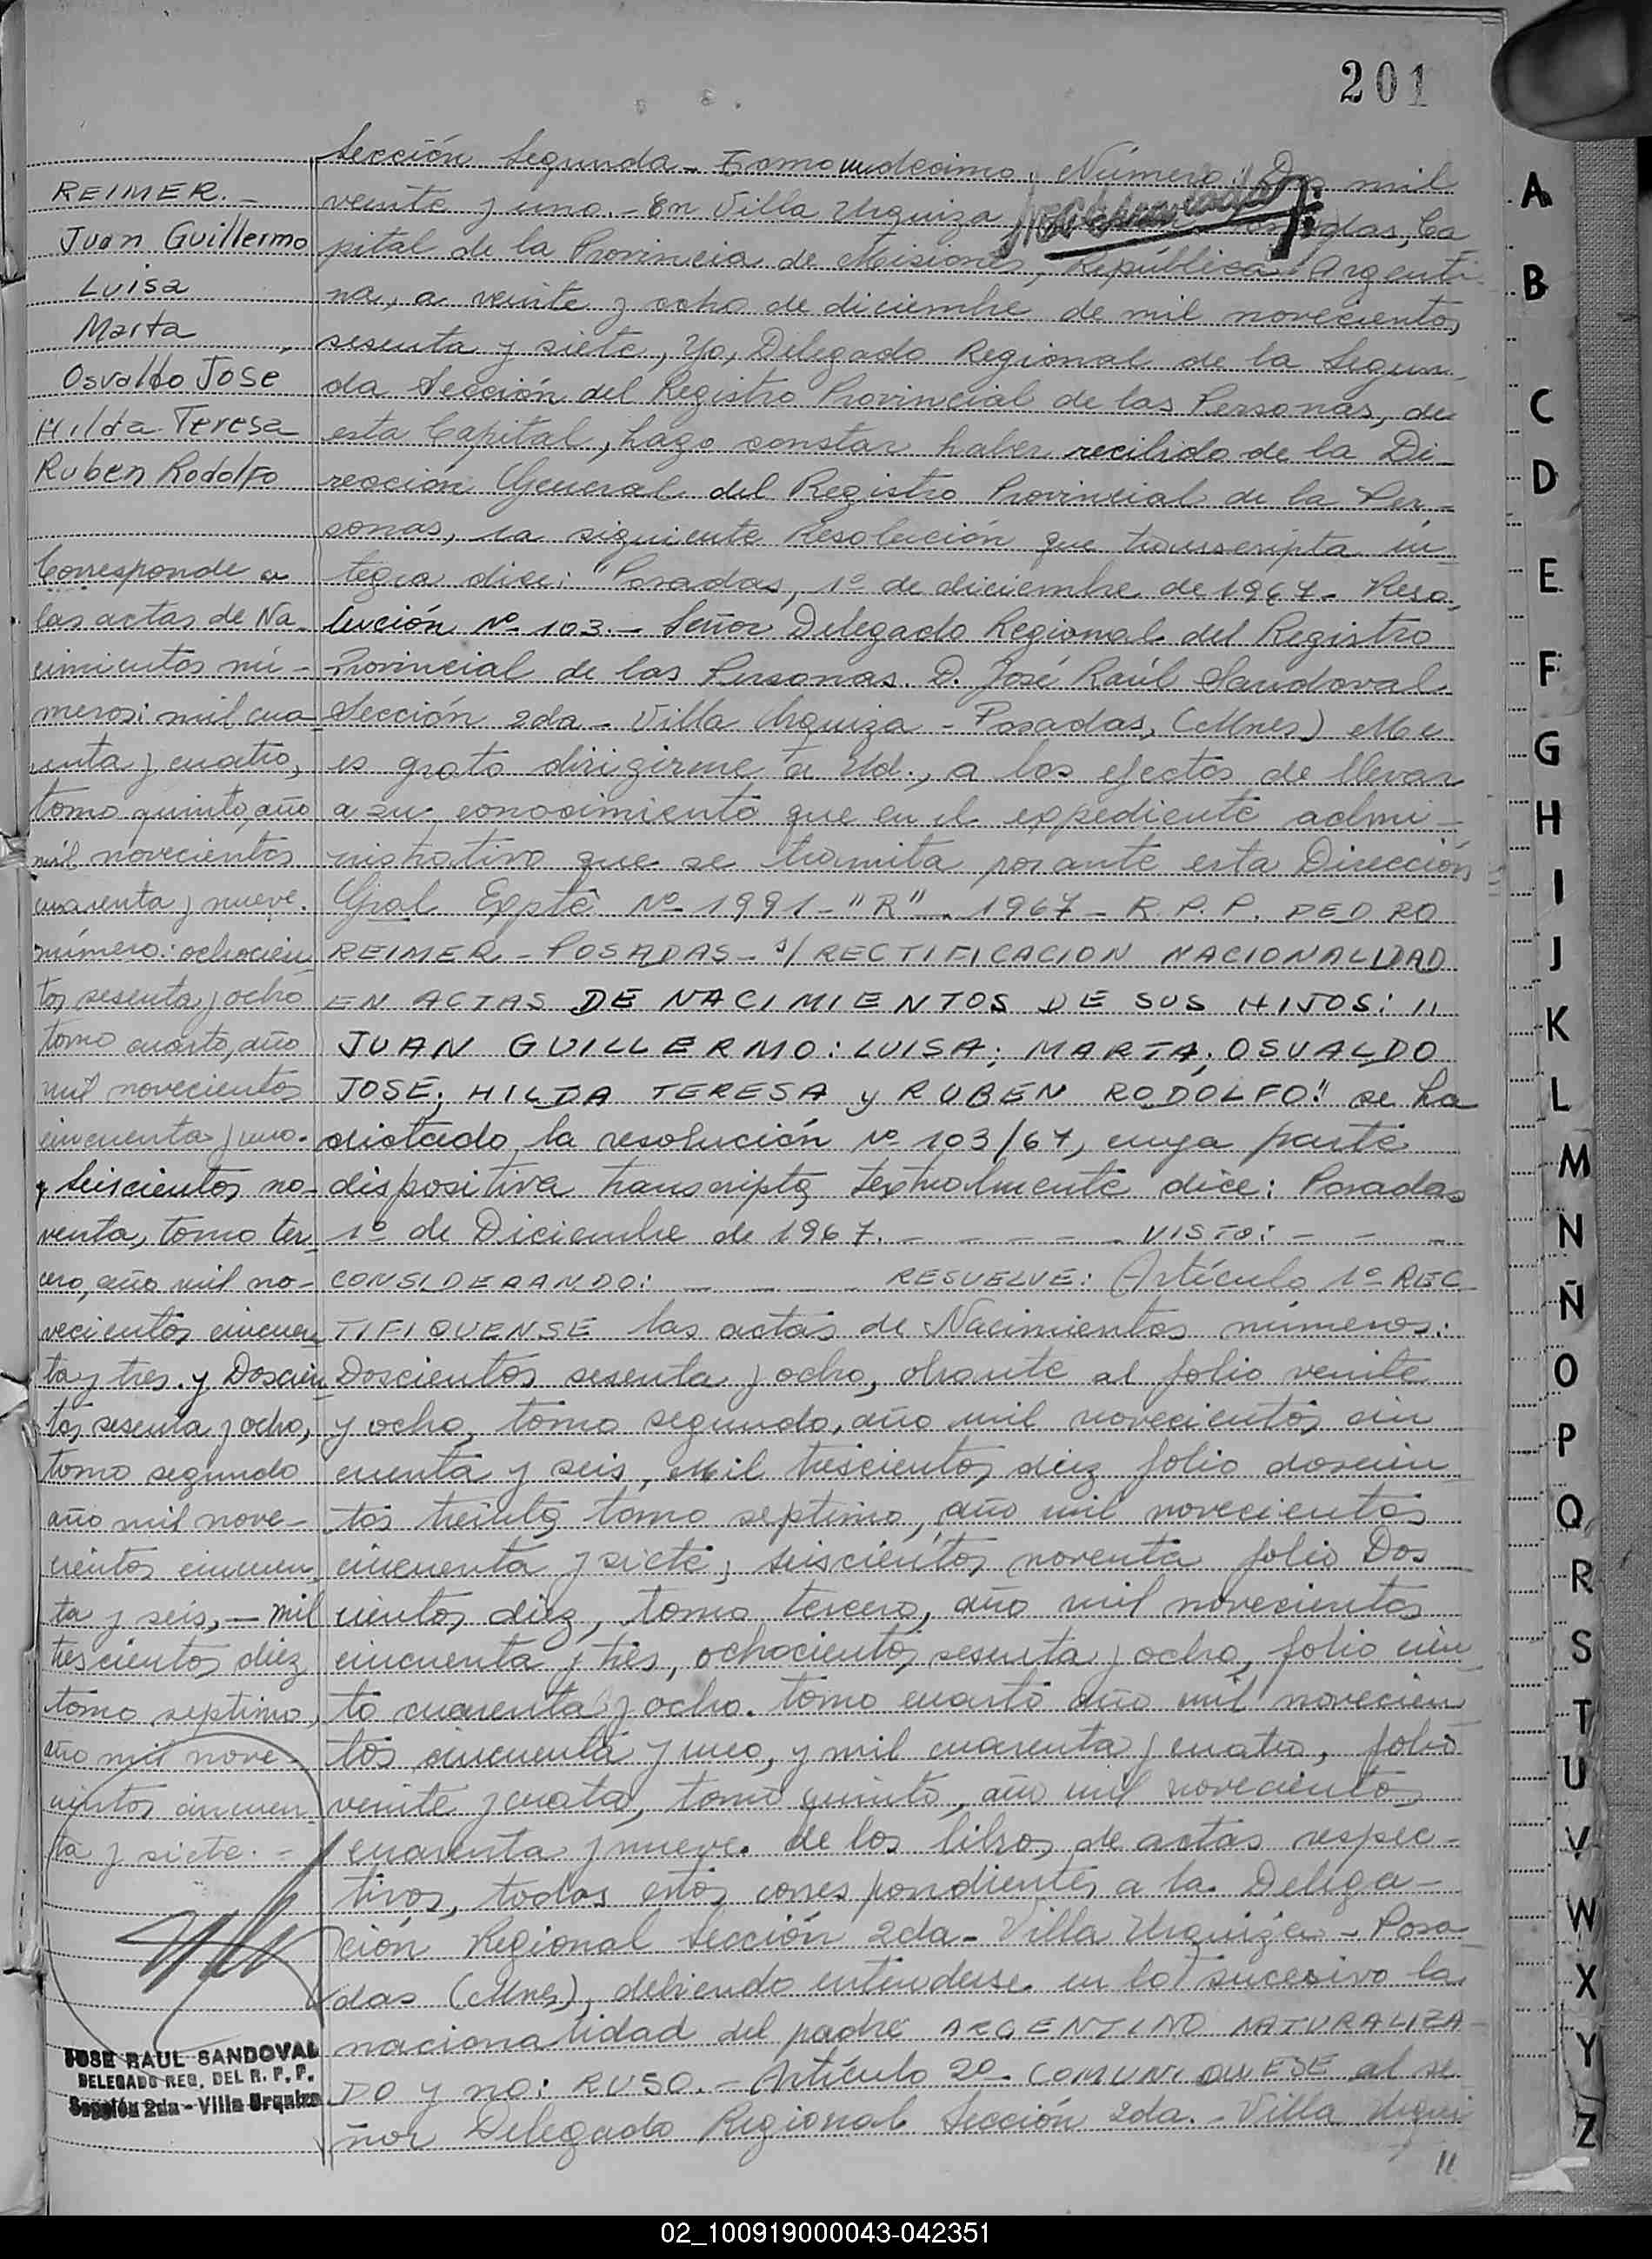 201
Sección Segunda - Tomo undecimo. Número: Dos mil
veinte y uno. - En Villa Urquiza
pital de la Provincia de Misiones, República Argenti-
na, a veinte y ocho de diciembre de mil novecientos
sesenta y siete, Yo, Delegado Regional de la Segun-
da Sección del Registro Provincial de las Personas, de
esta Capital, hago constar haber recibido de la Di-
rección General del Registro Provincial de la Per-
sonas, la siguiente Resolución que transcripta in-
tegra dice: "Posadas, 1º de diciembre de 1967. Reso-
lución Nº 103.- Señor Delegado Regional del Registro
Provincial de las Personas. D. José Raúl Sandoval
Sección 2da - Villa Urquiza - Posadas, (Mnes) Me
es grato dirigirme a Ud., a los efectos de llevar
a su conocimiento que en el expediente admi-
nistrativo que se tramita por ante esta Dirección
Gral Expte Nº 1991-"R". 1967 - R.P.P. PEDRO
REIMER - POSADAS - s/ RECTIFICACION NACIONALIDAD
EN ACTAS DE NACIMIENTOS DE SUS HIJOS: "
JUAN GUILLERMO: LUISA; MARTA; OSVALDO
JOSÉ; HILDA TERESA y RUBEN RODOLFO." se ha
dictado la resolución Nº 103/67, cuya parte
dispositiva transcripta textualmente dice: Posadas
1º de Diciembre de 1967. - - - - - VISTO: - - -
CONSIDERANDO: - - - RESUELVE: Artículo 1º REC
TIFIQUENSE las actas de Nacimientos números:
Doscientos sesenta y ocho, obrante al folio veinte
y ocho, tomo segundo, año mil novecientos cin
cuenta y seis, Mil trescientos diez folio doscien
tos treinta tomo septimo, año mil novecientos
cincuenta y siete; seiscientos noventa folio Dos
cientos diez, tomo tercero, año mil novecientos
cincuenta y tres, ochocientos sesenta y ocho, folio cien
to cuarenta y ocho. tomo cuarto año mil novecien
tos cincuenta y uno, y mil cuarenta y cuatro, folio
veinte y cuatro, tomo quinto, año mil novecientos
cuarenta y nueve. de los libros de actas respec-
tivos, todos estos correspondientes a la Delega-
ción Regional Sección 2da - Villa Urquiza - Posa
das (Mnes), debiendo entenderse en lo sucesivo la
nacionalidad del padre ARGENTINO NATURALIZA-
DO y no: RUSO. - Artículo 2º COMUNIQUESE al se
ñor Delegado Regional Sección 2da. - Villa Urqui
"
REIMER. -
Juan Guillermo
Luisa
Marta
Osvaldo Jose
Hilda Teresa
Ruben Rodolfo
Corresponde a
las actas de Na-
cimientos nú-
meros: mil cua-
renta y cuatro,
tomo quinto, año
mil novecientos
cuarenta y nueve.
número: ochocien-
tos sesenta y ocho
tomo cuarto, año
mil novecientos
cincuenta y uno.
y Seiscientos no-
venta, tomo ter-
cero, año mil no-
vecientos cincuen
ta y tres. y Doscien
tos sesenta y ocho,
tomo segundo
año mil nove-
cientos cincuen
ta y seis, - mil
trescientos diez
tomo septimo,
año mil nove-
cientos cincuen
ta y siete. -
JOSE RAUL SANDOVAL
DELEGADO REG. DEL R. P. P.
Sección 2da - Villa Urquiza
A
B
C
D
E
F
G
H
I
J
K
L
M
N
Ñ
O
P
Q
R
S
T
U
V
W
X
Y
Z
02_100919000043-042351